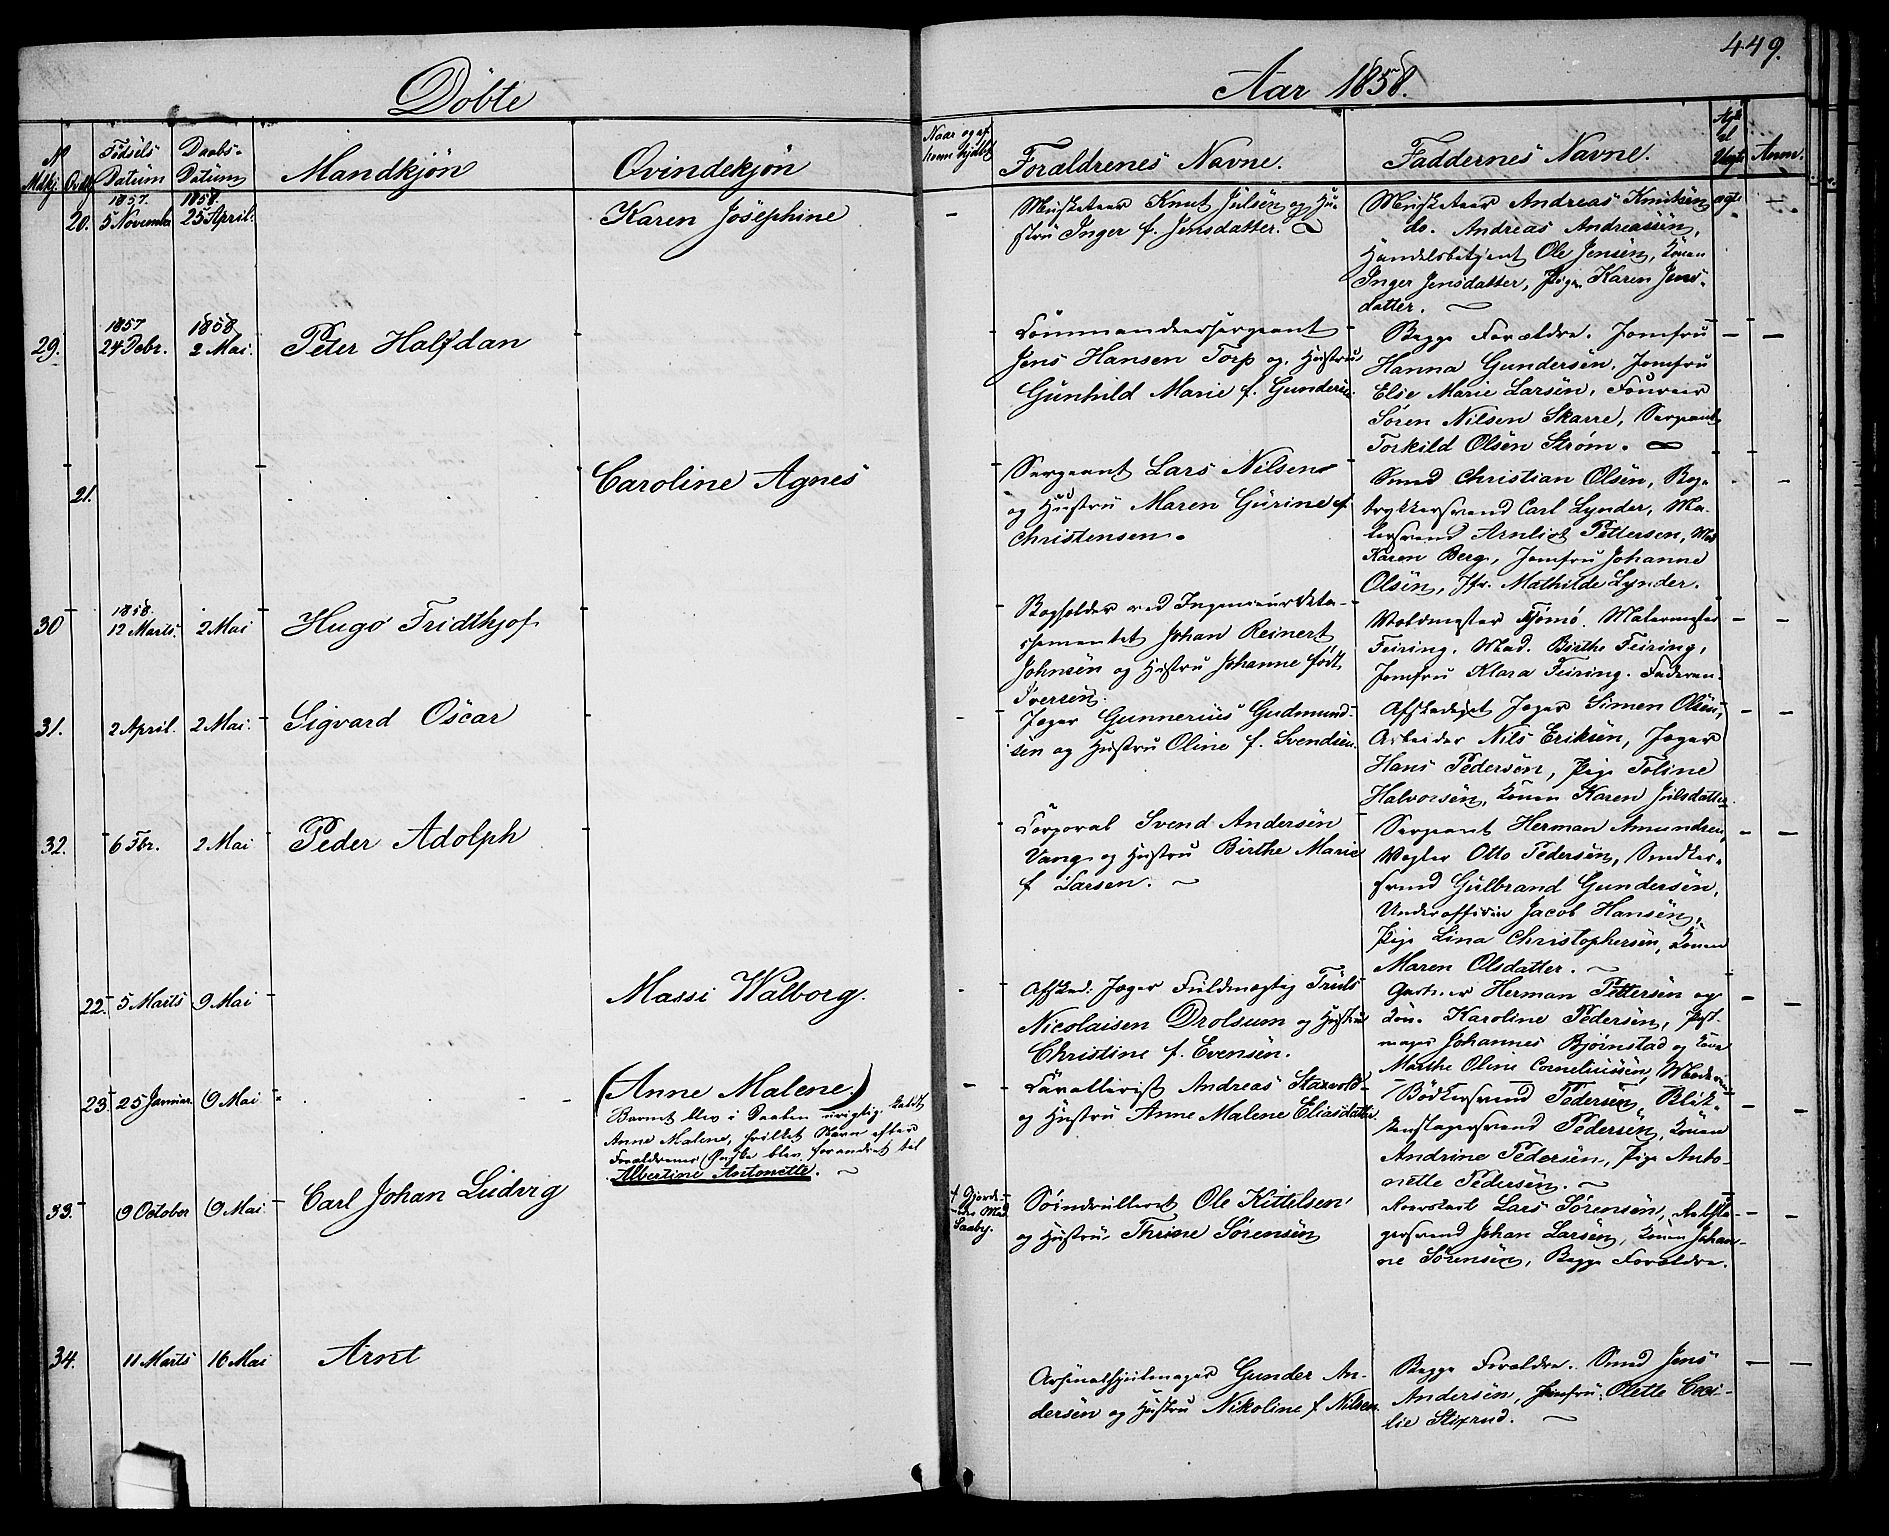 449.
Döbte
Aar 1858.
No
Mdkj. Qvdkj.
Fødsels Datum
Daabs-Datum
Mandkjön
Qvindekjön
Naar og af hvem hjdbt
Forældrenes Navne.
Faddernes Navne.
Anm.
1857. 1858.
20. 5 November 25 April.
Karen Josephine
Musketeer Knut Julsen og Hu-
stru Inger f. Jensdatter.
Musketeer Andreas Knutsen
do. Andreas Andreassen,
Handelsbetjent Ole Jensen, Konen
Inger Jensdatter, Pige Karen Jens-
datter.
ægte
1857 1858
29. 24 Debr. 2 Mai.
Peter Halfdan
Commandeersergeant
Jens Hansen Torp og Hustru
Gunhild Marie f. Gundersen
Begge Forældre. Jomfru
Hanna Gundersen, Jomfru
Else Marie Larsen, Foureer
Søren Nilsen Skarre, Sergeant
Torkild Olsen Strøm.
21.
Caroline Agnes
Sergeant Lars Nilsen
og Hustru Maren Gurine f.
Christensen.
Smed Christian Olsen, Bog-
trykkersvend Carl Lynder, Ma-
lersvend Arnliot Pettersen, Mad
Karen Berg, Jomfru Johanne
Olsen, Jfr. Mathilde Lynder.
1858.
30 12 Marts. 2 Mai
Hugo Fridthjof
Bogholder ved Ingenieurdeta-
schementet Johan Reinert
Johnsen og Hustru Johanne født
Iversen.
Voldmester Fjömö. Malermester
Feiring. Mad. Birthe Feiring,
Jomfru Klara Feiring. Faderen.
31. 2 April. 2 Mai.
Sigvard Oscar
Jæger Gunnerius Gudmund-
sen og Hustru Oline f. Svendsen
Afskediget Jæger Simen Olsen,
Arbeider Nils Eriksen, Jæger
Hans Pedersen, Pige Toline
Halvorsen, Konen Karen Julsdatter
32. 6 Fbr. 2 Mai
Peder Adolph
Corporal Svend Andersen
Vang og Hustru Birthe Marie
f. Larsen.
Sergeant Herman Amundsen,
Vægter Otto Pedersen, Snedker-
svend Gulbrand Gundersen,
Underofficer Jacob Hansen,
Pige Lina Christophersen, Konen
Maren Olsdatter.
22. 5 Marts 9 Mai
Massi Walborg.
Afsked: Jæger Fuldmægtig Truls
Nicolaisen Drolsum og Hustru
Christine f. Evensen.
Gartner Herman Pettersen og
Kone Karoline Pedersen,
Johannes Bjørnstad og Kone
Marthe Oline Corneliussen, Moderen
23. 25 Januar 9 Mai
(Anne Malene.)
Barnet blev i Daaben urigtig kaldt
Anne Malene, hvilket Navn efter
Forældrenes Ønske blev forandret til
Albertine Antonette.
Cavallerist Andreas Staxvold
og Hustru Anne Malene Eliasdatter
Bødkersvend Pedersen, Blik-
kenslagersvend Pedersen, Konen
Andrine Pedersen, Pige Anto-
nette Pedersen.
33. 9 October 9 Mai
Carl Johan Ludvig
Gjorde-
moder Mad
Saaby.
Søindrulleret Ole Kittelsen
og Hustru Thrine Sørensen
Lars Sørensen, Rebsla-
gersvend Johan Larsen, Konen Johan-
ne Sørensen, Begge Forældre.
34. 11 Marts 16 Mai
Arnt
Arsenalshjulmager Gunder An-
dersen og Hustru Nikoline f. Nilsen.
Begge Forældre. Smed Jens
Andersen, Jomfru Olette Ceci-
lie Stixrud.